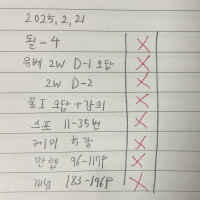 2025. 2. 21
돌-4 X
유벼 2W D-1 오답 X
2W D-2 X
물I 오답 + 강의 X
스포 11-35번 X
케미 특강 X
만렙 96-117p X
개념 183-196p X